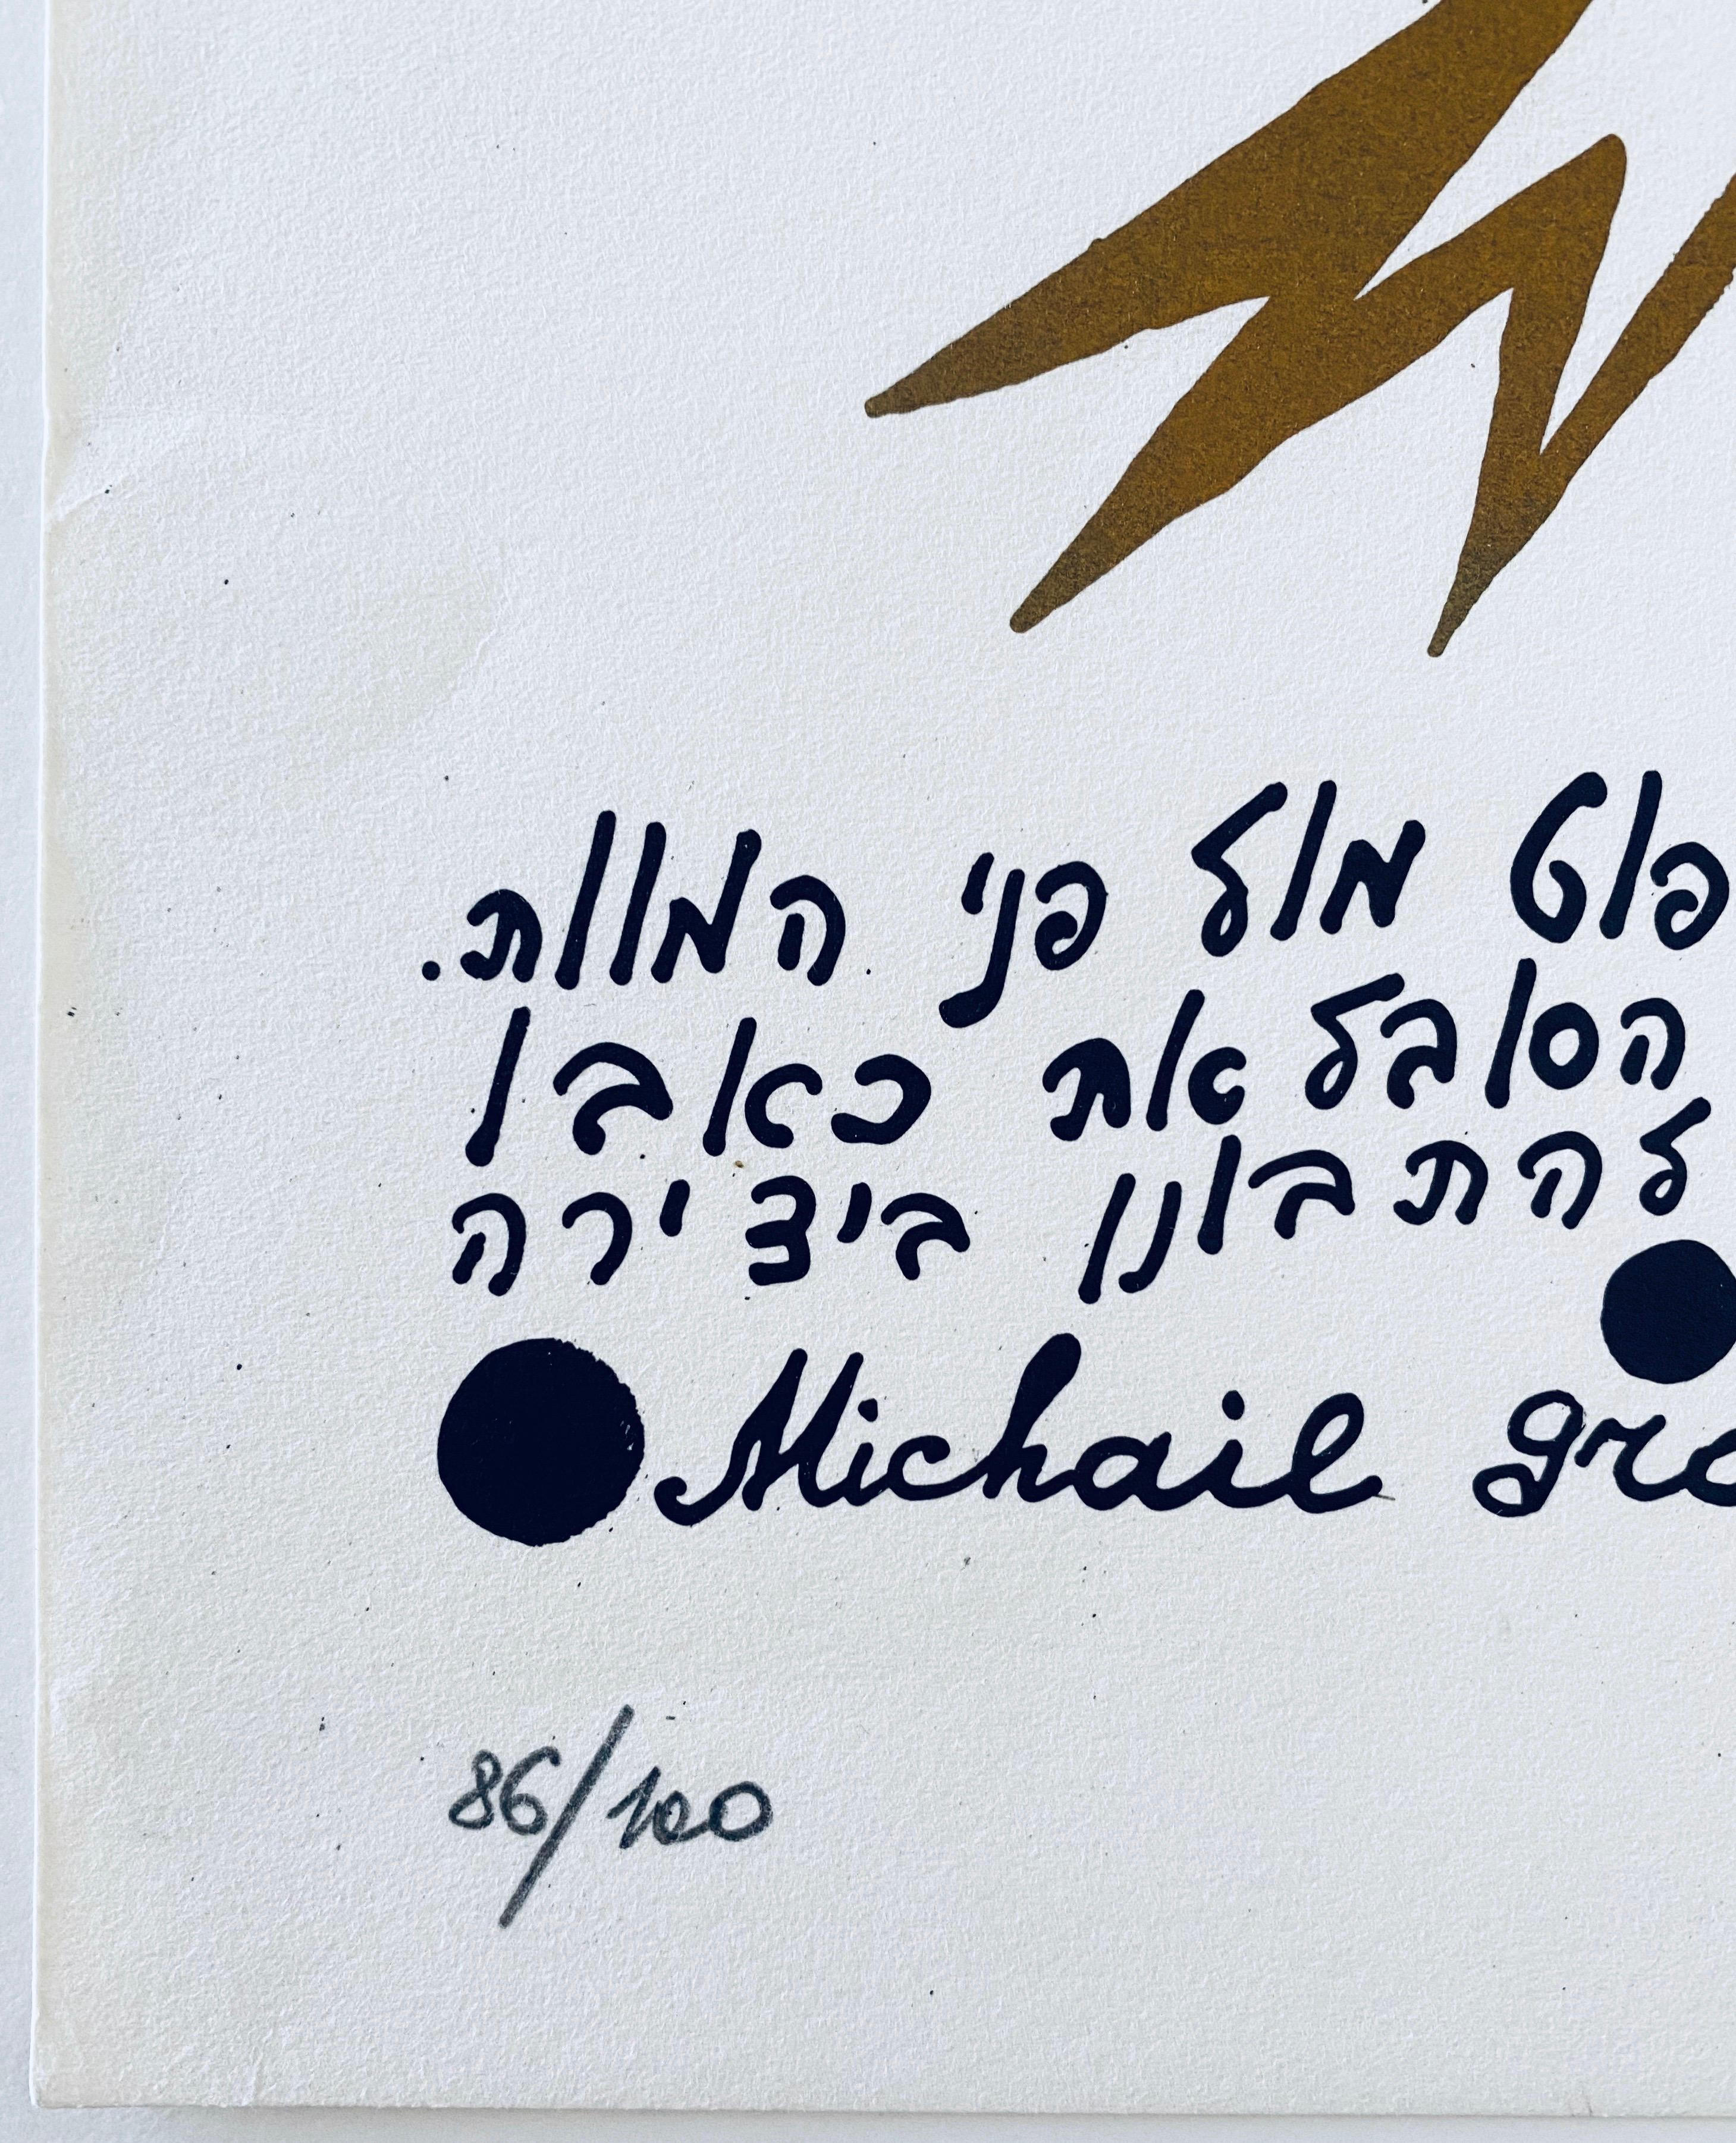 פוט מול פני המוות.
הסובל את כאבו
להתבונן ביצירה
Michail gro
86/100